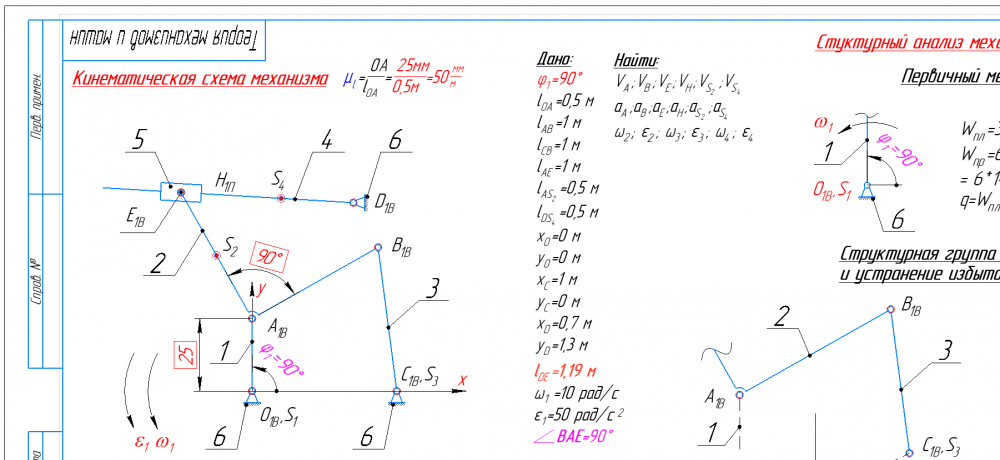 Теория механизмов и машин
Кинематическая схема механизма
μl=OA/lOA=25мм/0,5м=50 мм/м
Перв. примен.
Справ. №
5
4
6
S4
H1П
D1В
E1В
2
S2
90°
B1В
y
3
A1В
25
1
φ1=90°
x
C1В, S3
O1В, S1
6
6
ε1 ω1
Дано:
φ1=90°
lOA=0,5 м
lAB=1 м
lCB=1 м
lAE=1 м
lAS2=0,5 м
lDS4=0,5 м
xO=0 м
yO=0 м
xC=1 м
yC=0 м
xD=0,7 м
yD=1,3 м
lDE=1,19 м
ω1=10 рад/с
ε1=50 рад/с2
∠BAE=90°
Найти:
VA; VB; VE; VH; VS2; VS4
aA; aB; aE; aH; aS2; aS4
ω2; ε2; ω3; ε3; ω4; ε4
Стуктурный анализ
Первичный
ω1
1
φ1=90°
O1В, S1
6
Wпл=
Wпр=
q=Wпл
Структурная группа
и устранение
B1В
2
3
A1В
1
C1В, S3